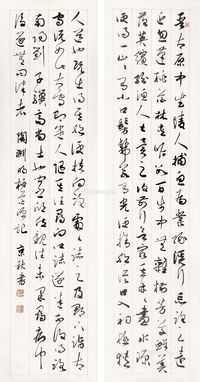 晉太原中武陵人捕魚為業緣溪行忘路之遠
近忽逢桃花林夾岸數百步中無雜樹芳草鮮美
落英繽紛漁人甚異之復前行欲窮其林林盡水源
便得一山山有小口髣髴若有光便捨船從口入初極狹
既出得其船便扶向路處處誌之及郡下詣太
守說如此太守即遣人隨其往尋向所誌遂迷不復得路
南陽劉子驥高尚士也聞之欣然規往未果尋病終
後遂無問津者 陶淵明桃花源記